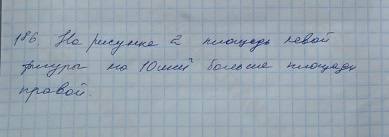 186. На рисунке 2 площадь левой
фигуры на 10 мм² больше площади
правой.